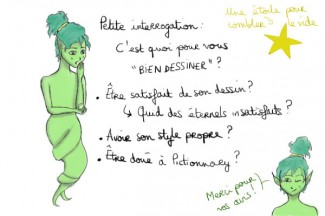 Petite interrogation:
Une étoile pour
combler le vide
C'est quoi pour vous
"BIEN DESSINER"?
• Être satisfait de son dessin?
↳ Quid des éternels insatisfaits?
• Avoir son style propre?
• Être doué à Pictionnary?
Merci pour
vos avis!